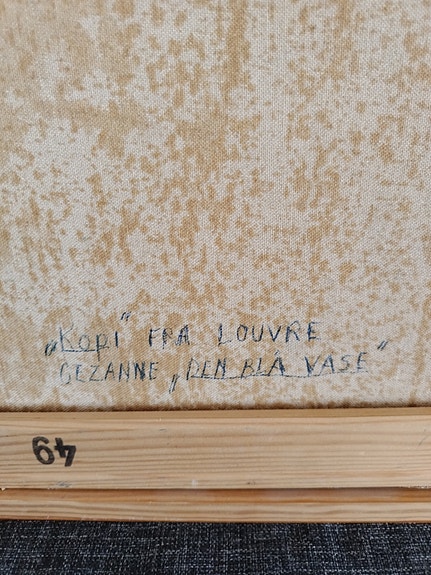 „Kopi” FRA LOUVRE
CEZANNE „DEN BLÅ VASE”
49